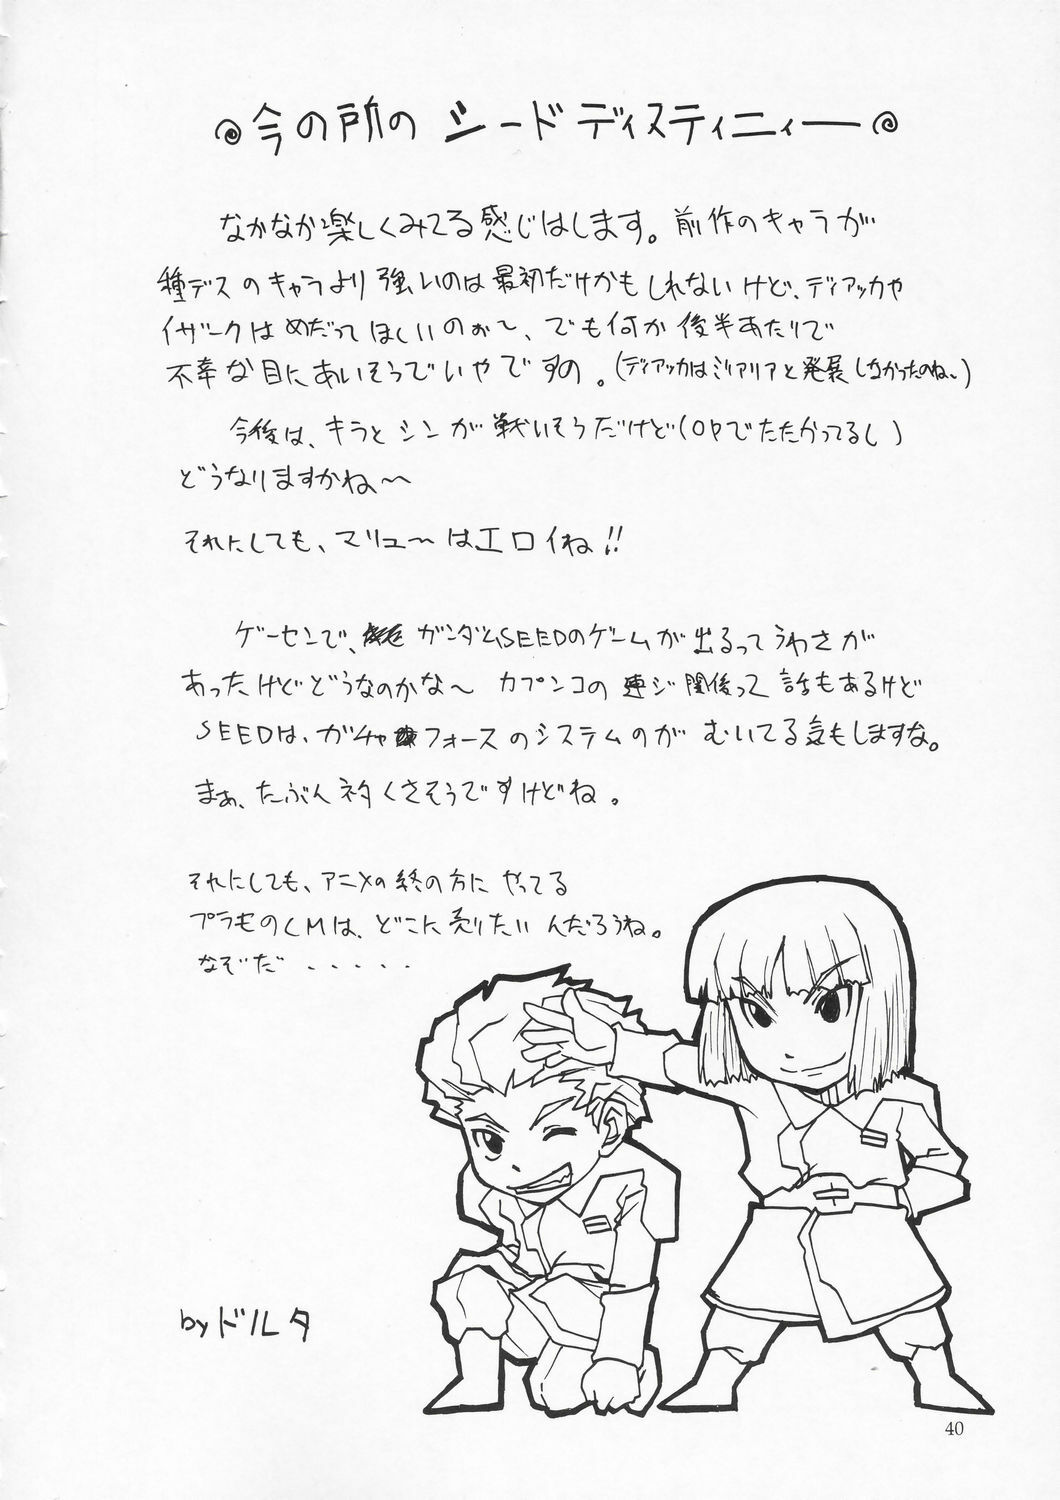 今の所の シード ディスティニィー
なかなか楽しくみてる感じはします。前作のキャラが
種デスのキャラより強いのは最初だけかもしれないけど、ディアッカや
イザークはめだってほしいのぉ〜、でも何か後半あたりで
不幸な目にあいそうでいやですの。(ディアッカはミリアリアと発展しなかったのね〜)
今後は、キラとシンが戦いそうだけど(OPでたたかってるし)
どうなりますかね〜
それにしても、マリュ〜はエロイね!!
ゲーセンで、ガンダムSEEDのゲームが出るってうわさが
あったけどどうなのかな〜 カプンコの連ジ関係って話もあるけど
SEEDは、ガチャフォースのシステムのが むいてる気もしますな。
まぁ、たぶんネタくさそうですけどね。
それにしても、アニメの終の方にやってる
プラモのCMは、どこに売りたいんだろうね。
なぞだ ・・・・・
by ドルタ
40